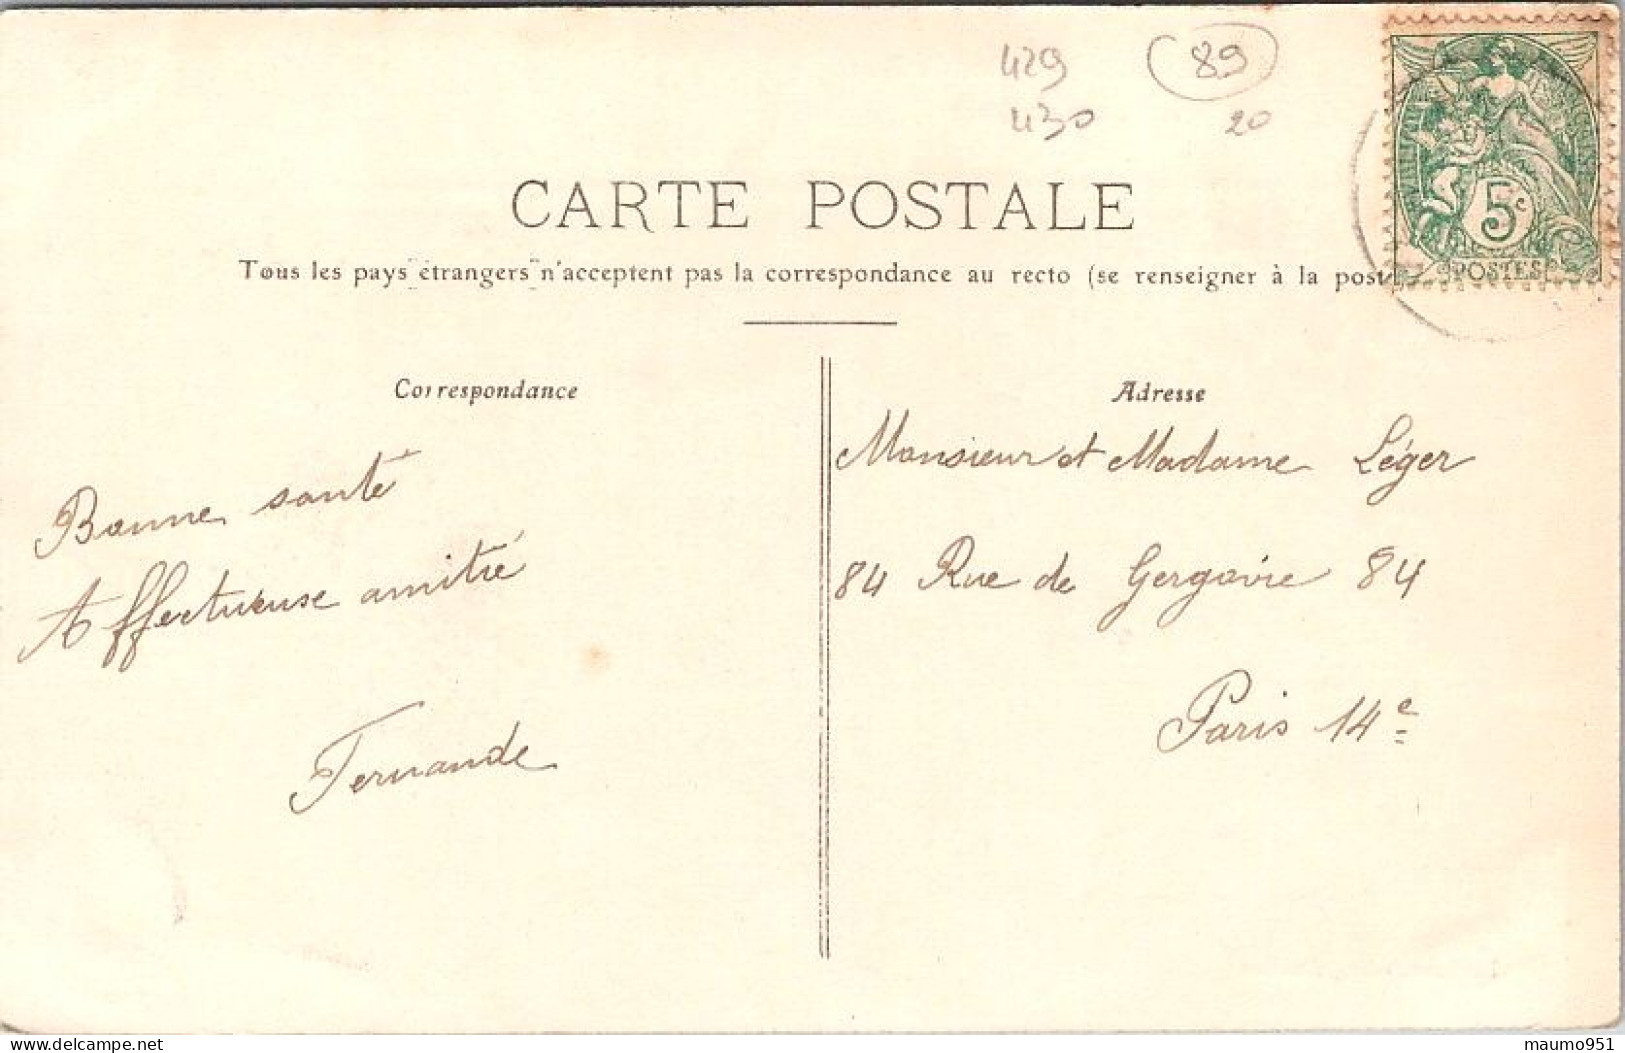 429
89
430
20
5c
POSTES
CARTE POSTALE
Tous les pays étrangers n'acceptent pas la correspondance au recto (se renseigner à la post
Correspondance
Adresse
Bonne santé
Affectueuse amitié
Fernande
Monsieur et Madame Léger
84 Rue de Gergovie 84
Paris 14e
delcampe.net
maumo951